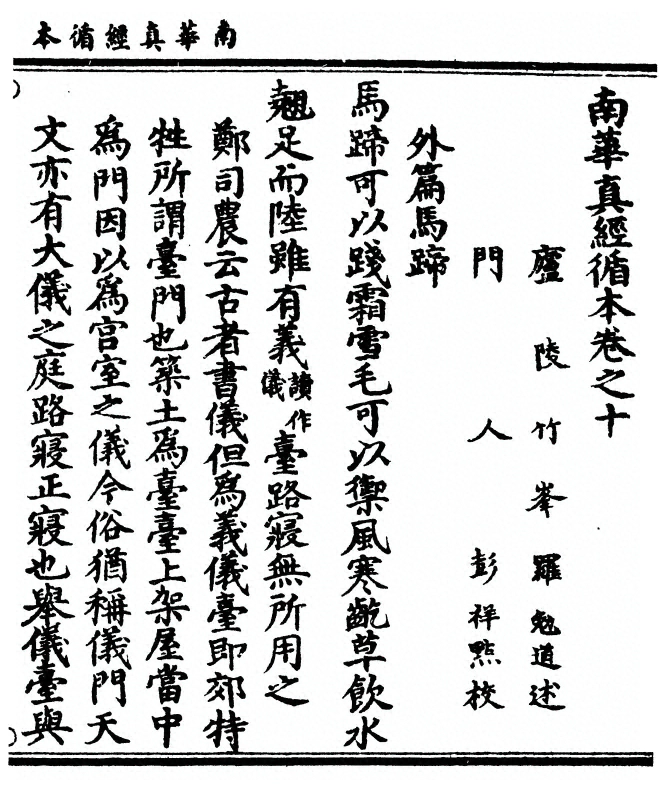 南華真經循本
南華真經循本卷之十
廬陵竹峯羅勉道述
門人彭祥點校
外篇馬蹄
馬蹄可以踐霜雪毛可以禦風寒齕草飲水
翹足而陸雖有義讀作儀臺路寢無所用之
鄭司農云古者書儀但為義儀臺即郊特
牲所謂臺門也築土為臺臺上架屋當中
為門因以為宮室之儀今俗猶稱儀門天
文亦有大儀之庭路寢正寢也舉儀臺與